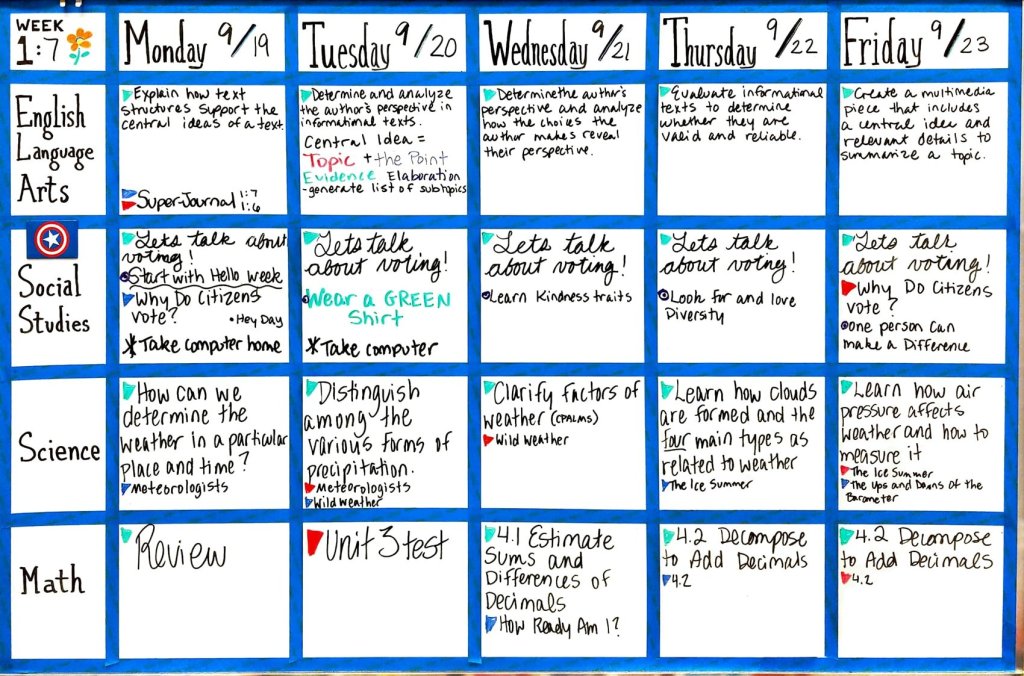 WEEK
1:7
Monday 9/19
Tuesday 9/20
Wednesday 9/21
Thursday 9/22
Friday 9/23
English
Language
Arts
Explain how text
structures support the
central ideas of a text.
Super-Journal 1:7
1:6
Determine and analyze
the author's perspective in
informational texts.
Central Idea =
Topic + the Point
Evidence Elaboration
-generate list of subtopics
Determine the author's
perspective and analyze
how the choices the
author makes reveal
their perspective.
Evaluate informational
texts to determine
whether they are
valid and reliable.
Create a multimedia
piece that includes
a central idea and
relevant details to
summarize a topic.
Social
Studies
Lets talk about
voting!
Start with Hello week
Why Do Citizens
vote?
• Hey Day
* Take computer home
Lets talk
about voting!
Wear a GREEN
Shirt
* Take computer
Lets talk
about voting!
Learn Kindness traits
Lets talk
about voting!
Look for and love
Diversity
Lets talk
about voting!
Why Do Citizens
vote?
one person can
make a Difference
Science
How can we
determine the
weather in a particular
place and time?
Meteorologists
Distinguish
among the
various forms of
precipitation.
Meteorologists
Wild weather
Clarify factors of
weather (CPALMS)
Wild weather
Learn how clouds
are formed and the
four main types as
related to weather
The Ice Summer
Learn how air
pressure affects
weather and how to
measure it
The Ice Summer
The Ups and Downs of the
Barometer
Math
Review
Unit 3 test
4.1 Estimate
Sums and
Differences of
Decimals
How Ready Am I?
4.2 Decompose
to Add Decimals
4.2
4.2 Decompose
to Add Decimals
4.2